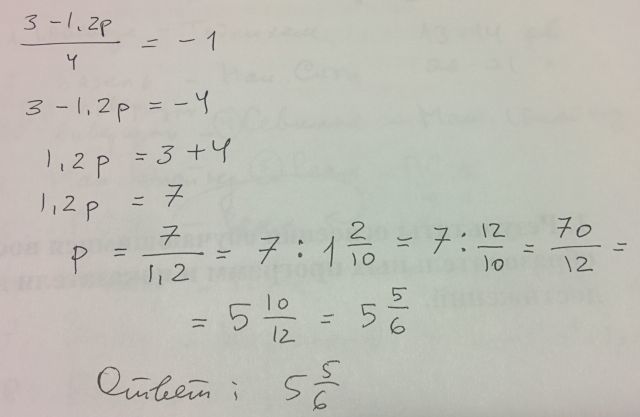 (3 - 1,2p)/4 = -1
3 - 1,2p = -4
1,2p = 3 + 4
1,2p = 7
p = 7/1,2 = 7 : 1 2/10 = 7 : 12/10 = 70/12 =
= 5 10/12 = 5 5/6
Ответ: 5 5/6